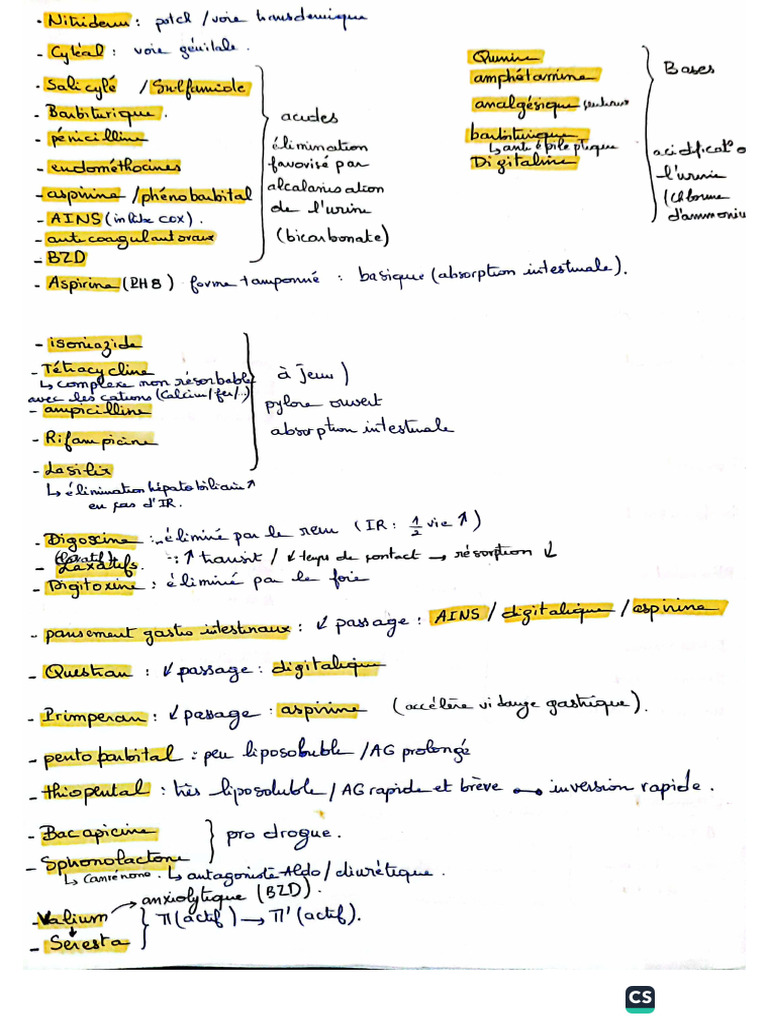 - Nitriderm : patch / voie transdermique
- Cytéal : voie génitale.
- Salicylé / Sulfamide
- Barbiturique.
- pénicilline
- endométhocines
- aspirine / phénobarbital
- AINS (inhibe COX).
- anticoagulant oraux
- BZD
acides
élimination
favorisé par
alcalanisation
de l'urine
(bicarbonate)
Quinine
amphétamine
analgésique centraux
barbiturique
↳ anti épileptique
Digitaline
Bases
acidificat° 
l'urine
(chlorure
d'ammonium
- Aspirine (PH8) forme tamponné : basique (absorption intestinale).
- isoniazide
- Tétracycline
↳ complexe non résorbable
avec les cations (Calcium/fer/...)
- ampicilline
- Rifampicine
- Lasilix
↳ élimination hépatobiliaire ↑
en cas d'IR.
à jeun )
pylore ouvert
absorption intestinale
- Digoxine : éliminé par le rein (IR : 1/2 vie ↑)
- Laxatifs. : ↑ transit / ↓ temps de contact → résorption ↓
- Digitoxine : éliminé par le foie
- pansement gastro intestinaux : ↓ passage : AINS / digitalique / aspirine
- Questran : ↓ passage : digitalique
- Primperan : ↓ passage : aspirine (accélère vidange gastrique).
- pento barbital : peu liposoluble / AG prolongé
- thiopental : très liposoluble / AG rapide et brève → inversion rapide.
- Bacapicine
- Sphonolactone
} pro drogue.
↳ Canrénone. ↳ antagoniste Aldo / diurétique.
→ anxiolytique (BZD).
- Valium
↓
- Séresta
} Π (actif) → Π' (actif).
CS